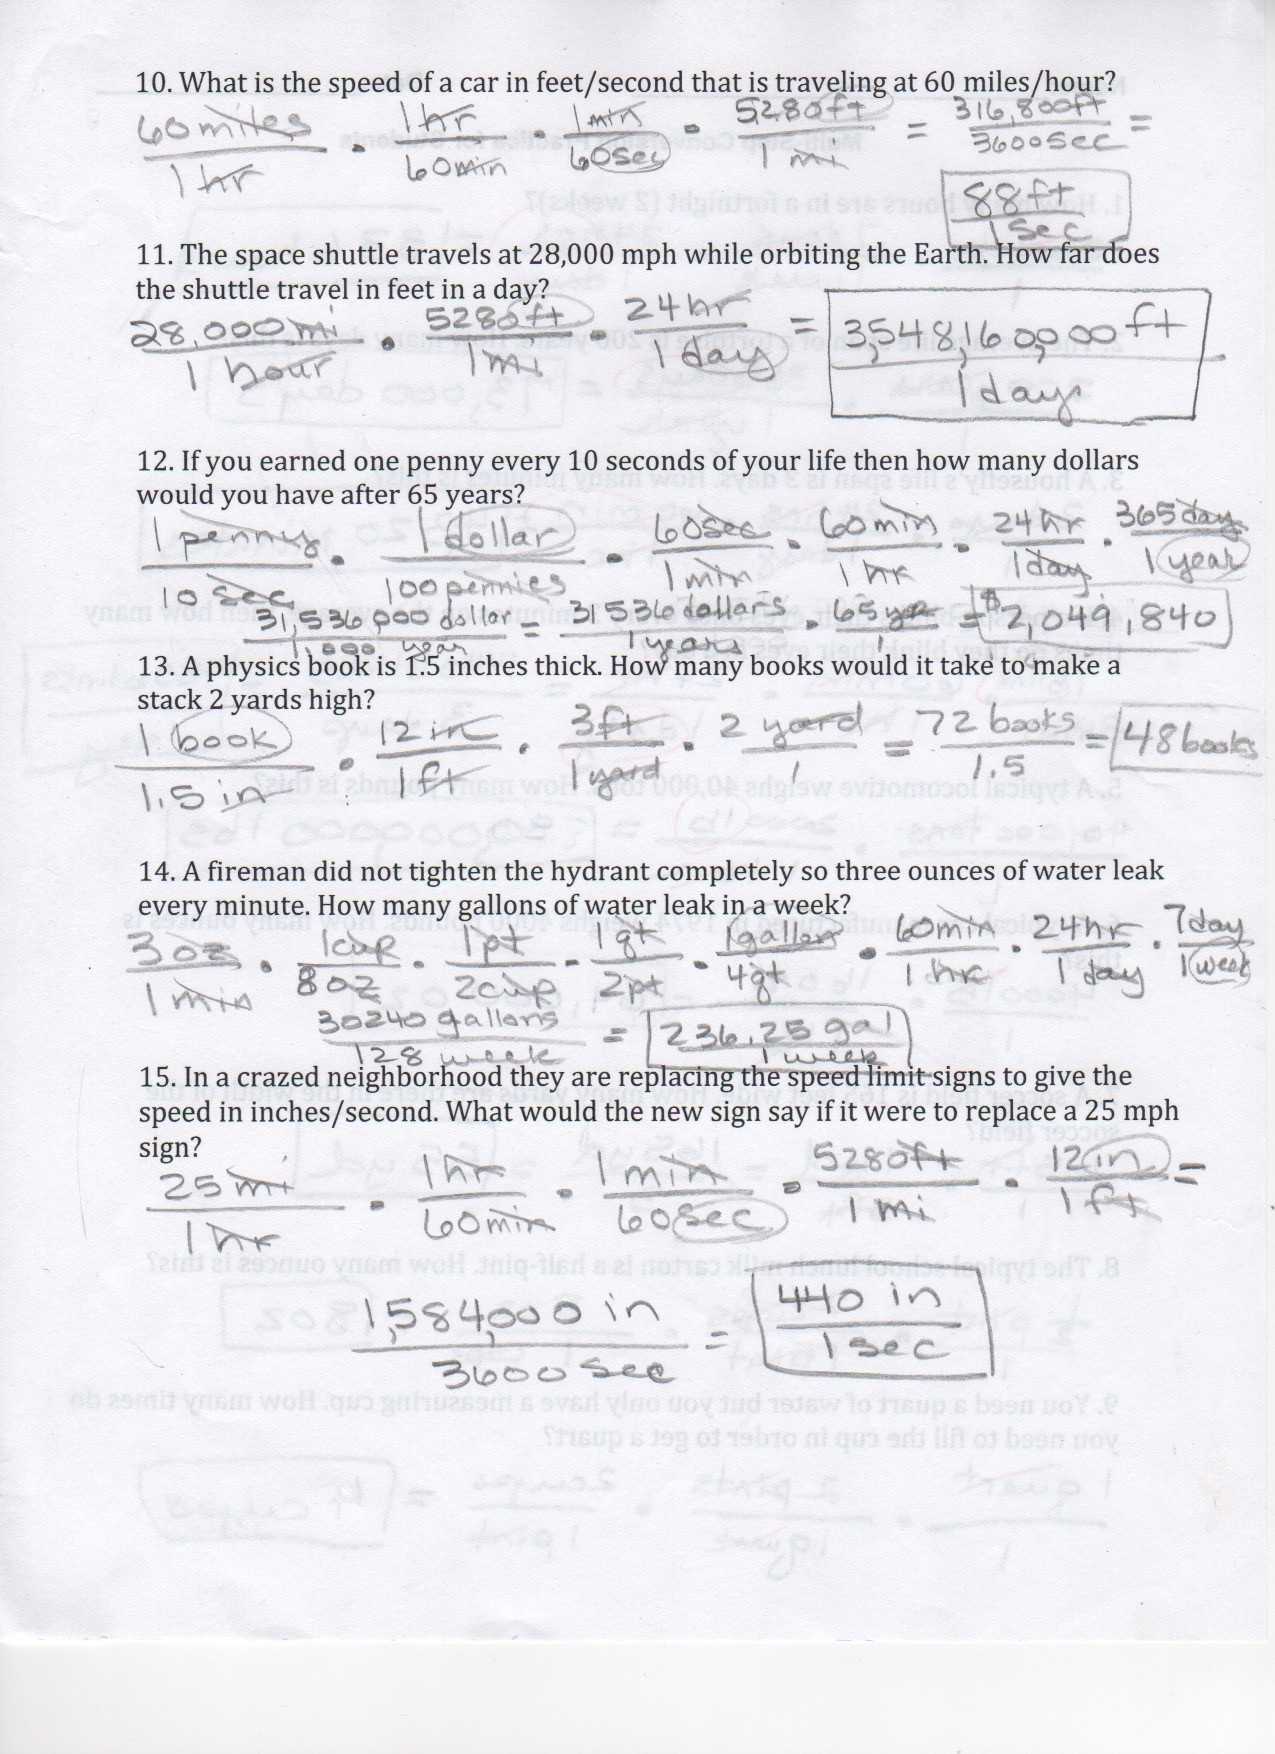 10. What is the speed of a car in feet/second that is traveling at 60 miles/hour?
60 miles / 1 hr · 1 hr / 60 min · 1 min / 60 sec · 5280 ft / 1 mi = 316,800 ft / 3600 sec =
88 ft / 1 sec
11. The space shuttle travels at 28,000 mph while orbiting the Earth. How far does
the shuttle travel in feet in a day?
28,000 mi / 1 hour · 5280 ft / 1 mi · 24 hr / 1 day = 3,548,160,000 ft / 1 day
12. If you earned one penny every 10 seconds of your life then how many dollars
would you have after 65 years?
1 penny / 10 sec · 1 dollar / 100 pennies · 60 sec / 1 min · 60 min / 1 hr · 24 hr / 1 day · 365 day / 1 year
31,536,000 dollar / 1,000 year = 31536 dollars / 1 years · 65 yr / 1 = $2,049,840
13. A physics book is 1.5 inches thick. How many books would it take to make a
stack 2 yards high?
1 book / 1.5 in · 12 in / 1 ft · 3 ft / 1 yard · 2 yard / 1 = 72 books / 1.5 = 48 books
14. A fireman did not tighten the hydrant completely so three ounces of water leak
every minute. How many gallons of water leak in a week?
3 oz / 1 min · 1 cup / 8 oz · 1 pt / 2 cup · 1 qt / 2 pt · 1 gallon / 4 qt · 60 min / 1 hr · 24 hr / 1 day · 7 day / 1 week
30240 gallons / 128 week = 236.25 gal / 1 week
15. In a crazed neighborhood they are replacing the speed limit signs to give the
speed in inches/second. What would the new sign say if it were to replace a 25 mph
sign?
25 mi / 1 hr · 1 hr / 60 min · 1 min / 60 sec · 5280 ft / 1 mi · 12 in / 1 ft =
1,584,000 in / 3600 sec = 440 in / 1 sec